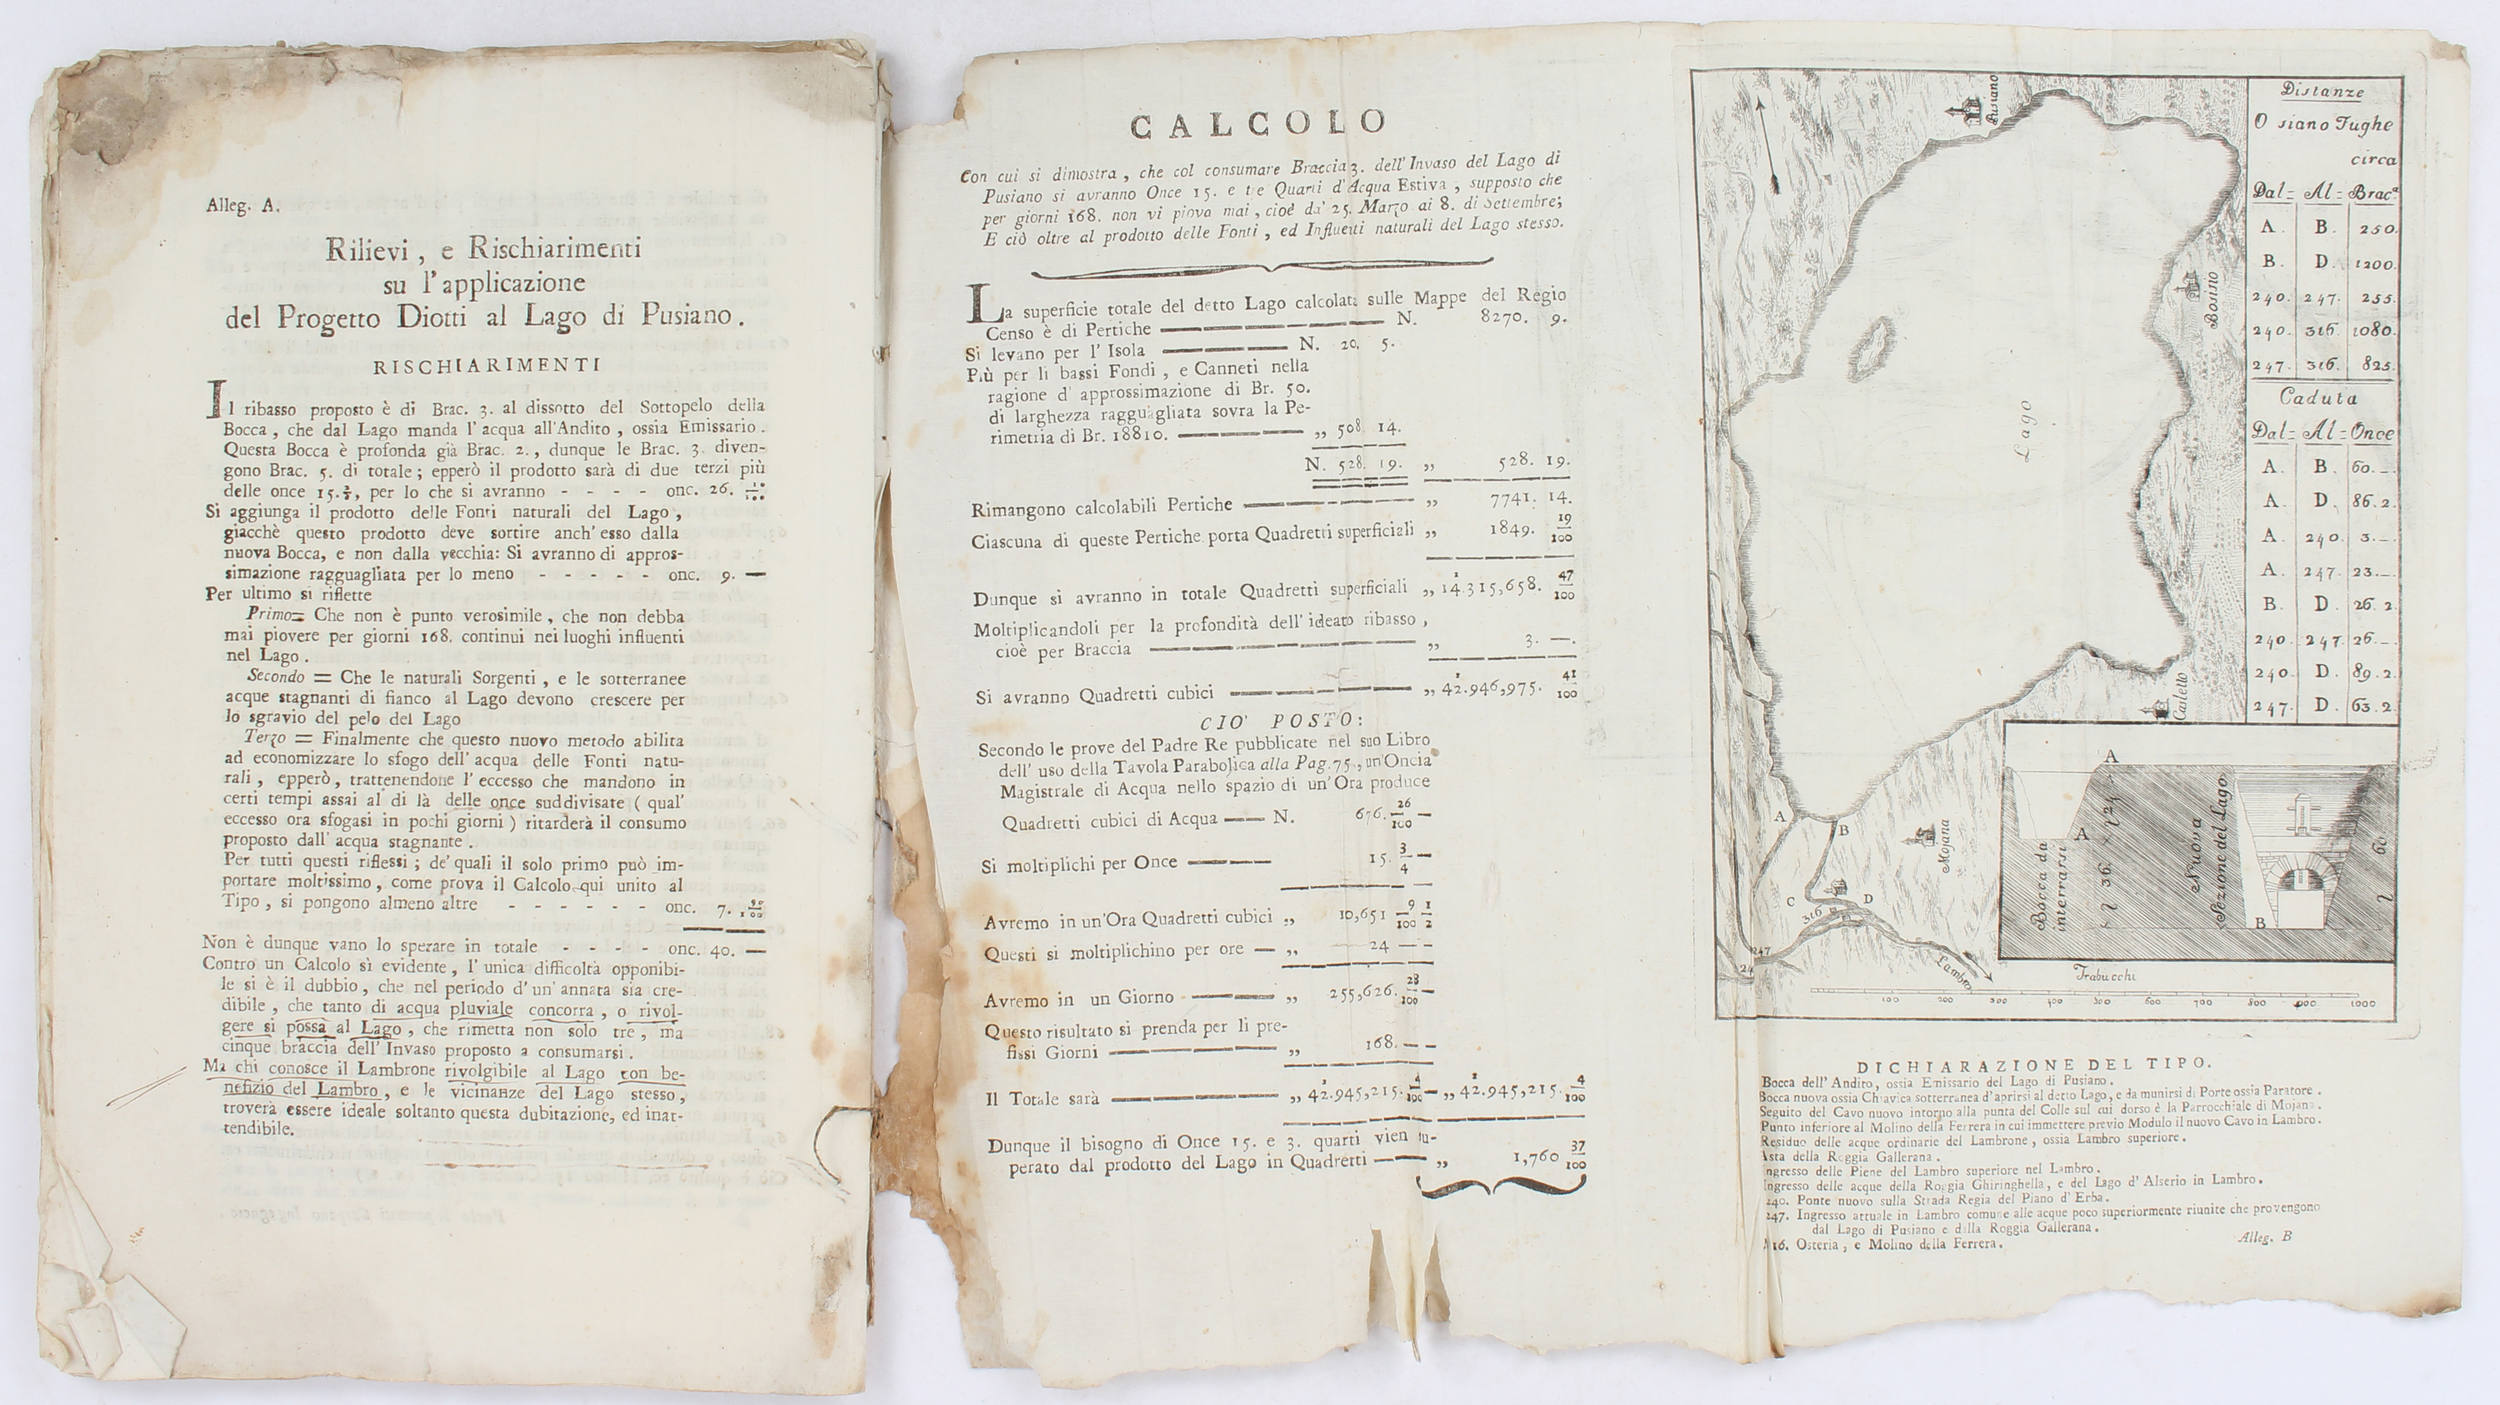 Alleg. A.
Rilievi, e Rischiarimenti
su l'applicazione
del Progetto Diotti al Lago di Pusiano.
RISCHIARIMENTI
Il ribasso proposto è di Brac. 3. al dissotto del Sottopelo della
Bocca, che dal Lago manda l'acqua all'Andito, ossia Emissario.
Questa Bocca è profonda già Brac. 2., dunque le Brac. 3. diven-
gono Brac. 5. di totale; epperò il prodotto sarà di due terzi più
delle once 15. 3/4, per lo che si avranno - - - - onc. 26. 10/100
Si aggiunga il prodotto delle Fonti naturali del Lago,
giacchè questo prodotto deve sortire anch'esso dalla
nuova Bocca, e non dalla vecchia: Si avranno di appros-
simazione ragguagliata per lo meno - - - - - onc. 9. —
Per ultimo si riflette
Primo= Che non è punto verosimile, che non debba
mai piovere per giorni 168. continui nei luoghi influenti
nel Lago.
Secondo = Che le naturali Sorgenti, e le sotterranee
acque stagnanti di fianco al Lago devono crescere per
lo sgravio del pelo del Lago
Terzo = Finalmente che questo nuovo metodo abilita
ad economizzare lo sfogo dell'acqua delle Fonti natu-
rali, epperò, trattenendone l'eccesso che mandono in
certi tempi assai al di là delle once suddivisate (qual'
eccesso ora sfogasi in pochi giorni) ritarderà il consumo
proposto dall'acqua stagnante.
Per tutti questi riflessi; de' quali il solo primo può im-
portare moltissimo, come prova il Calcolo qui unito al
Tipo, si pongono almeno altre - - - - - - onc. 7. 90/100
Non è dunque vano lo sperare in totale - - - - onc. 40. —
Contro un Calcolo sì evidente, l'unica difficoltà opponibi-
le si è il dubbio, che nel periodo d'un'annata sia cre-
dibile, che tanto di acqua pluviale concorra, o rivol-
gere si possa al Lago, che rimetta non solo tre, ma
cinque braccia dell'Invaso proposto a consumarsi.
Ma chi conosce il Lambrone rivolgibile al Lago con be-
nefizio del Lambro, e le vicinanze del Lago stesso,
troverà essere ideale soltanto questa dubitazione, ed inat-
tendibile.
CALCOLO
Con cui si dimostra, che col consumare Braccia 3. dell'Invaso del Lago di
Pusiano si avranno Once 15. e tre Quarti d'Acqua Estiva, supposto che
per giorni 168. non vi piova mai, cioè da' 25. Marzo ai 8. di Settembre;
E ciò oltre al prodotto delle Fonti, ed Influenti naturali del Lago stesso.
La superficie totale del detto Lago calcolata sulle Mappe del Regio
Censo è di Pertiche — N. 8270. 9.
Si levano per l'Isola — N. 20. 5.
Più per li bassi Fondi, e Canneti nella
ragione d'approssimazione di Br. 50.
di larghezza ragguagliata sovra la Pe-
rimetria di Br. 18810. — „ 508. 14.
N. 528. 19. „ 528. 19.
Rimangono calcolabili Pertiche — „ 7741. 14.
Ciascuna di queste Pertiche porta Quadretti superficiali „ 1849. 19/100
Dunque si avranno in totale Quadretti superficiali „ 14.315,658. 47/100
Moltiplicandoli per la profondità dell'ideato ribasso,
cioè per Braccia — „ 3. —.
Si avranno Quadretti cubici — „ 42.946,975. 41/100
CIO' POSTO:
Secondo le prove del Padre Re pubblicate nel suo Libro
dell'uso della Tavola Parabolica alla Pag. 75., un'Oncia
Magistrale di Acqua nello spazio di un'Ora produce
Quadretti cubici di Acqua — N. 676. 26/100 —
Si moltiplichi per Once — 15. 3/4 —
Avremo in un'Ora Quadretti cubici „ 10,651 9/100 1/2
Questi si moltiplichino per ore — „ 24 — —
Avremo in un Giorno — „ 255,626. 28/100 —
Questo risultato si prenda per li pre-
fissi Giorni — „ 168. — —
Il Totale sarà — „ 42.945,215. 4/100 — „ 42.945,215. 4/100
Dunque il bisogno di Once 15. e 3. quarti vien su-
perato dal prodotto del Lago in Quadretti — „ 1,760 37/100
Pusiano
Bosisio
Lago
Casletto
Mojana
A
B
C
D
316
247
24
Lambro
Distanze
O siano Fughe
circa
Dal= Al= Brac.a
A. B. 250.
B. D. 1200.
240. 247. 255.
240. 316. 1080.
247. 316. 825.
Caduta
Dal= Al= Once
A. B. 60. —.
A. D. 86. 2.
A. 240. 3. —.
A. 247. 23. —.
B. D. 26. 2.
240. 247. 26. —.
240. D. 89. 2.
247. D. 63. 2.
A
A
Bocca da
interrarsi
l 36. × l 24
Nuova
Sezione del Lago
B
l 60
Trabucchi
100 200 300 400 500 600 700 800 900 1000
DICHIARAZIONE DEL TIPO.
Bocca dell'Andito, ossia Emissario del Lago di Pusiano.
Bocca nuova ossia Chiavica sotterranea d'aprirsi al detto Lago, e da munirsi di Porte ossia Paratore.
Seguito del Cavo nuovo intorno alla punta del Colle sul cui dorso è la Parrocchiale di Mojana.
Punto inferiore al Molino della Ferrera in cui immettere previo Modulo il nuovo Cavo in Lambro.
Residuo delle acque ordinarie del Lambrone, ossia Lambro superiore.
Asta della Roggia Gallerana.
Ingresso delle Piene del Lambro superiore nel Lambro.
Ingresso delle acque della Roggia Ghiringhella, e del Lago d'Alserio in Lambro.
240. Ponte nuovo sulla Strada Regia del Piano d'Erba.
247. Ingresso attuale in Lambro comune alle acque poco superiormente riunite che provengono
dal Lago di Pusiano e dalla Roggia Gallerana.
316. Osteria, e Molino della Ferrera.
Alleg. B